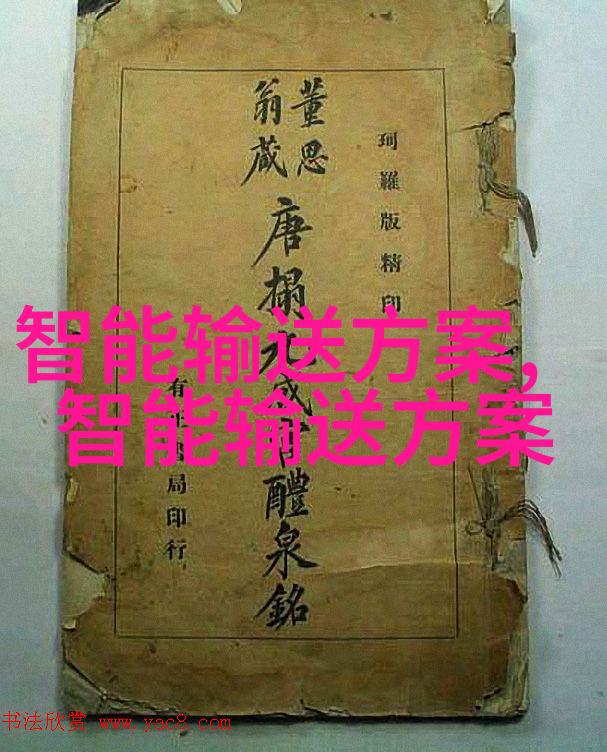 珂羅版精印
董思
翁藏
唐搨九成宮醴泉銘
有局印行
智能输送方案,
智能输送方案
书法欣赏 www.yac8.com